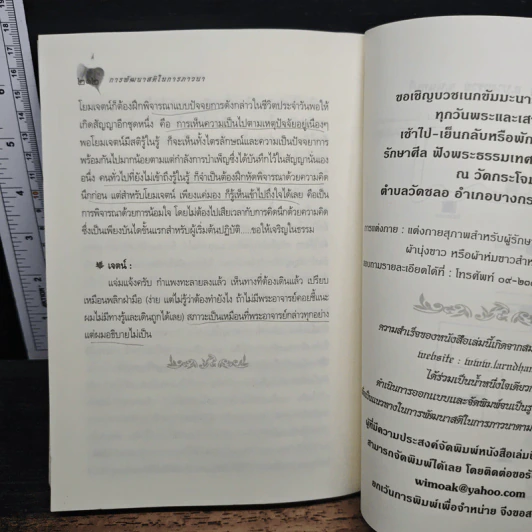 ๒๒
การพัฒนาสติในการภาวนา
โยมเจตน์ก็ต้องฝึกพิจารณาแบบปัจจยการดังกล่าวในชีวิตประจำวันพอให้
เกิดสัญญาอีกชุดหนึ่ง คือ การเห็นความเป็นไปตามเหตุปัจจัยอยู่เนืองๆ
พอโยมเจตน์มีสติรู้รูปรู้ ก็จะเห็นทั้งไตรลักษณ์และความเป็นปัจจยาการ
พร้อมกันไปมากน้อยตามแต่กำลังการบำเพ็ญซึ่งได้บันทึกไว้ในสัญญานั่นเอง
อนึ่ง คนทั่วไปที่ยังไม่เข้าถึงรู้ในรู้ ก็จำเป็นต้องฝึกหัดพิจารณาด้วยความคิด
นึกก่อน แต่สำหรับโยมเจตน์ เพียงแค่มอง ก็รู้เห็นเข้าไปถึงใจได้เลย คือเป็น
การพิจารณาด้วยการน้อมใจ โดยไม่ต้องไปเสียเวลากับการคิดนึกด้วยความคิด
ซึ่งเป็นเพียงบันไดขั้นแรกสำหรับผู้เริ่มต้นปฏิบัติ....ขอให้เจริญในธรรม
เจตน์ :
แจ่มแจ้งครับ กำแพงทะลายลงแล้ว เห็นทางที่ต้องเดินแล้ว เปรียบ
เหมือนพลิกฝ่ามือ (ง่าย แต่ไม่รู้ว่าต้องทำยังไง ถ้าไม่มีพระอาจารย์คอยชี้แนะ
ผมไม่มีทางรู้และเดินถูกได้เลย) สภาวะเป็นเหมือนที่พระอาจารย์กล่าวทุกอย่าง
แต่ผมอธิบายไม่เป็น
ขอเชิญบวชเนกขัมมะนา
ทุกวันพระและเส
เช้าไป-เย็นกลับหรือพัก
รักษาศีล ฟังพระธรรมเทศ
ณ วัดกระโจม
ตำบลวัดชลอ อำเภอบางกร
การแต่งกาย : แต่งกายสุภาพสำหรับผู้รักษ
ผ้านุ่งขาว หรือผ้าห่มขาวสำห
สอบถามรายละเอียดได้ที่ : โทรศัพท์ ๐๙-๒๐
ความสำเร็จของหนังสือเล่มนี้เกิดจากสม
website : www.larndha
ได้ร่วมเป็นน้ำหนึ่งใจเดียว
ดำเนินการออกแบบและจัดพิมพ์จนเป็นรู
เป็นแนวทางในการพัฒนาสติในการภาวนาตาม
ผู้ที่มีความประสงค์จัดพิมพ์หนังสือเล่มนี้
สามารถจัดพิมพ์ได้เลย โดยติดต่อขอรับ
wimoak@yahoo.com
ยกเว้นการพิมพ์เพื่อจำหน่าย จึงขอส